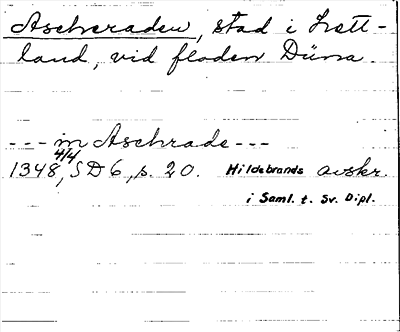 Ascheraden, stad i Lett-
land, vid floden Düna.
--- in Aschrade ---
4/4
1348, SD 6, s. 20. Hildebrands avskr.
i Saml. t. Sv. Dipl.